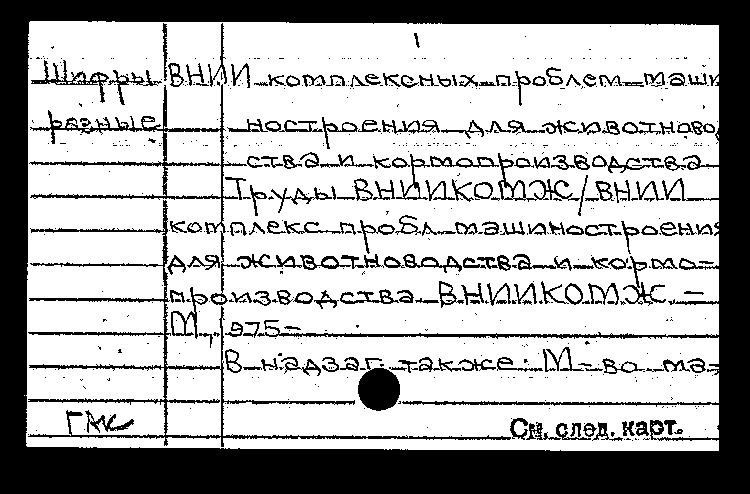 1
Шифры ВНИИ комплексных проблем маши
разные ностроения для животновод
ства и кормопроизводства
Труды ВНИИКОМЖ/ВНИИ
комплекс пробл машиностроения
для животноводства и кормо-
производства ВНИИКОМЖ. -
М., 975-
В надзаг. также: М-во ма-
ГАК См. след. карт.